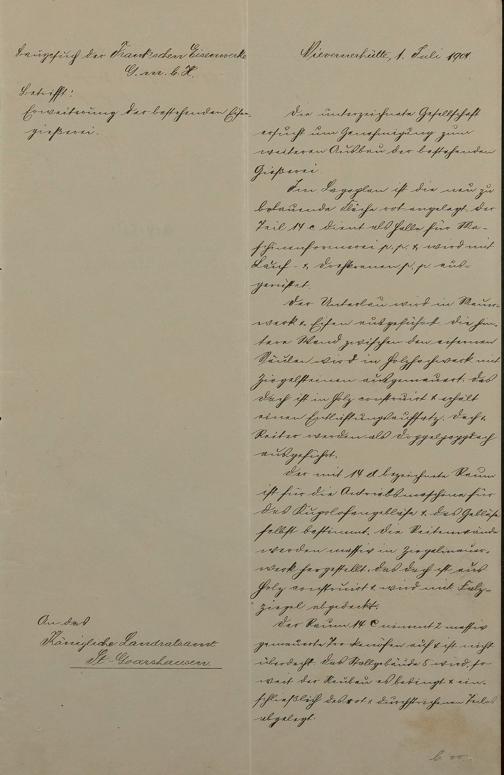 Baugesuch der Frank'schen Eisenwerke
G. m. b. H.
Betrifft:
Erweiterung der bestehenden Eisen-
gießerei.
Nievernerhütte, 1. Juli 1901.
Die unterzeichnete Gesellschaft
ersucht um Genehmigung zum
weiteren Ausbau der bestehenden
Gießerei.
Im Lageplan ist die neu zu
bebauende Fläche rot angelegt. Der
Teil 14 c dient als Halle für Ma-
schinenformerei p. p. & wird mit
Lauf- & Drehkranen p. p. aus-
gerüstet.
Der Unterbau wird in Mauer-
werk & Eisen ausgeführt. Die hin-
tere Wand zwischen den eisernen
Säulen wird in Holzfachwerk mit
Ziegelsteinen ausgemauert. Das
Dach ist in Holz construirt & erhält
einen Entlüftungsaufsatz. Dach &
Reiter werden als Doppelpappdach
ausgeführt.
Der mit 14 d bezeichnete Raum
ist für die Antriebsmaschine für
das Kupolofengebläse & das Gebläse
selbst bestimmt. Die Seitenwände
werden massiv in Ziegelmauer-
werk hergestellt. Das Dach ist aus
Holz construirt & wird mit Falz-
ziegel abgedeckt.
Der Raum 14 e nimmt 2 massiv
gemauerte auf & ist nicht
überdacht. Das wird, so-
weit der Neubau es bedingt & ein-
schließlich des rot durchstrichenen Teiles
abgelegt.
An das
Königliche Landratsamt
St. Goarshausen